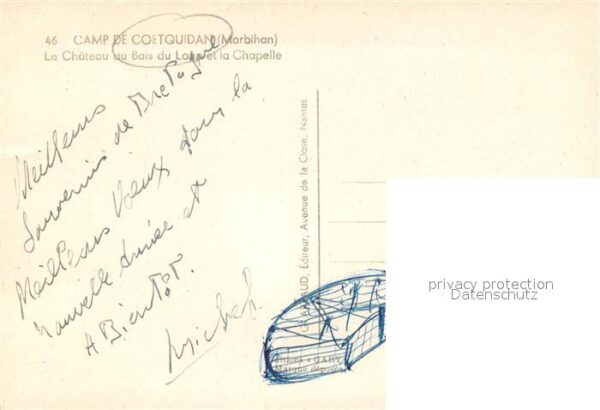 46 CAMP DE COETQUIDAN (Morbihan)
Le Château du Bois du Loup et la Chapelle
Meilleurs
Souvenirs de Bretagne
Meilleurs Vœux pour la
Nouvelle Année et
A Bientôt.
Michel
Éditeur, Avenue de la Close, Nantes
privacy protection
Datenschutz